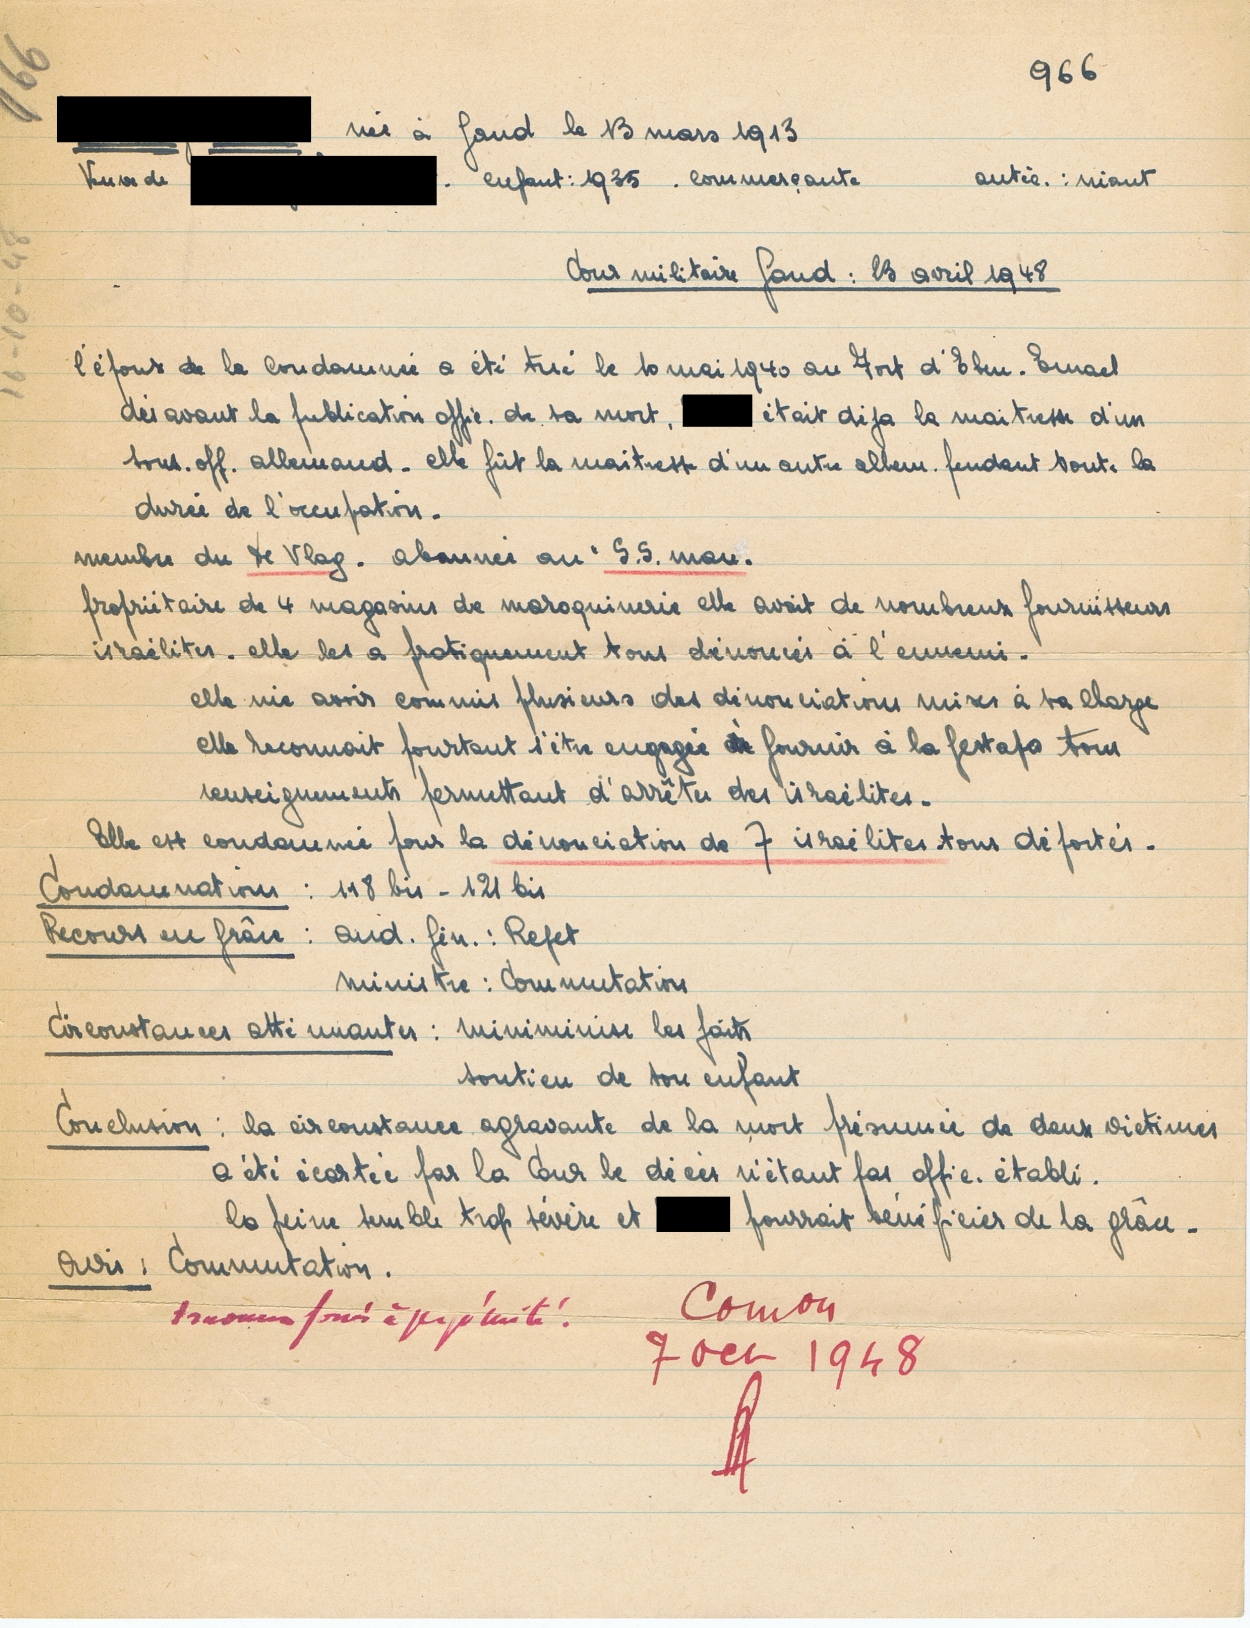 966
966
née à Gand le 13 mars 1913
Veuve de . enfant : 1935 . commerçante antéc. : néant
16-10-48
Cour militaire Gand : 13 avril 1948
l'époux de la condamnée a été tué le 10 mai 1940 au Fort d'Eben. Emael
dès avant la publication offic. de sa mort, était déja la maitresse d'un
sous. off. allemand - elle fût la maitresse d'un autre allem. pendant toute la
durée de l'occupation -
membre du De Vlag . abonnée au " S.S. man .
propriétaire de 4 magasins de maroquinerie elle avait de nombreux fournisseurs
israélites - elle les a pratiquement tous dénoncés à l'ennemi -
elle nie avoir commis plusieurs des dénonciations mises à sa charge
elle reconnait pourtant s'être engagée à fournir à la gestapo tous
renseignements permettant d'arrêter des israélites -
Elle est condamnée pour la dénonciation de 7 israélites tous déportés -
Condamnations : 118 bis - 121 bis
Recours en grâce : aud. gén. : Rejet
ministre : Commutation
Circonstances atténuantes : miniminise les faits
soutien de son enfant
Conclusion : la circonstance agravante de la mort présumée de deux victimes
a été écartée par la Cour le décès n'étant pas offic. établi .
la peine semble trop sévère et pourrait bénéficier de la grâce -
Avis : Commutation .
travaux forcés à perpétuité .
Comon
7 oct 1948